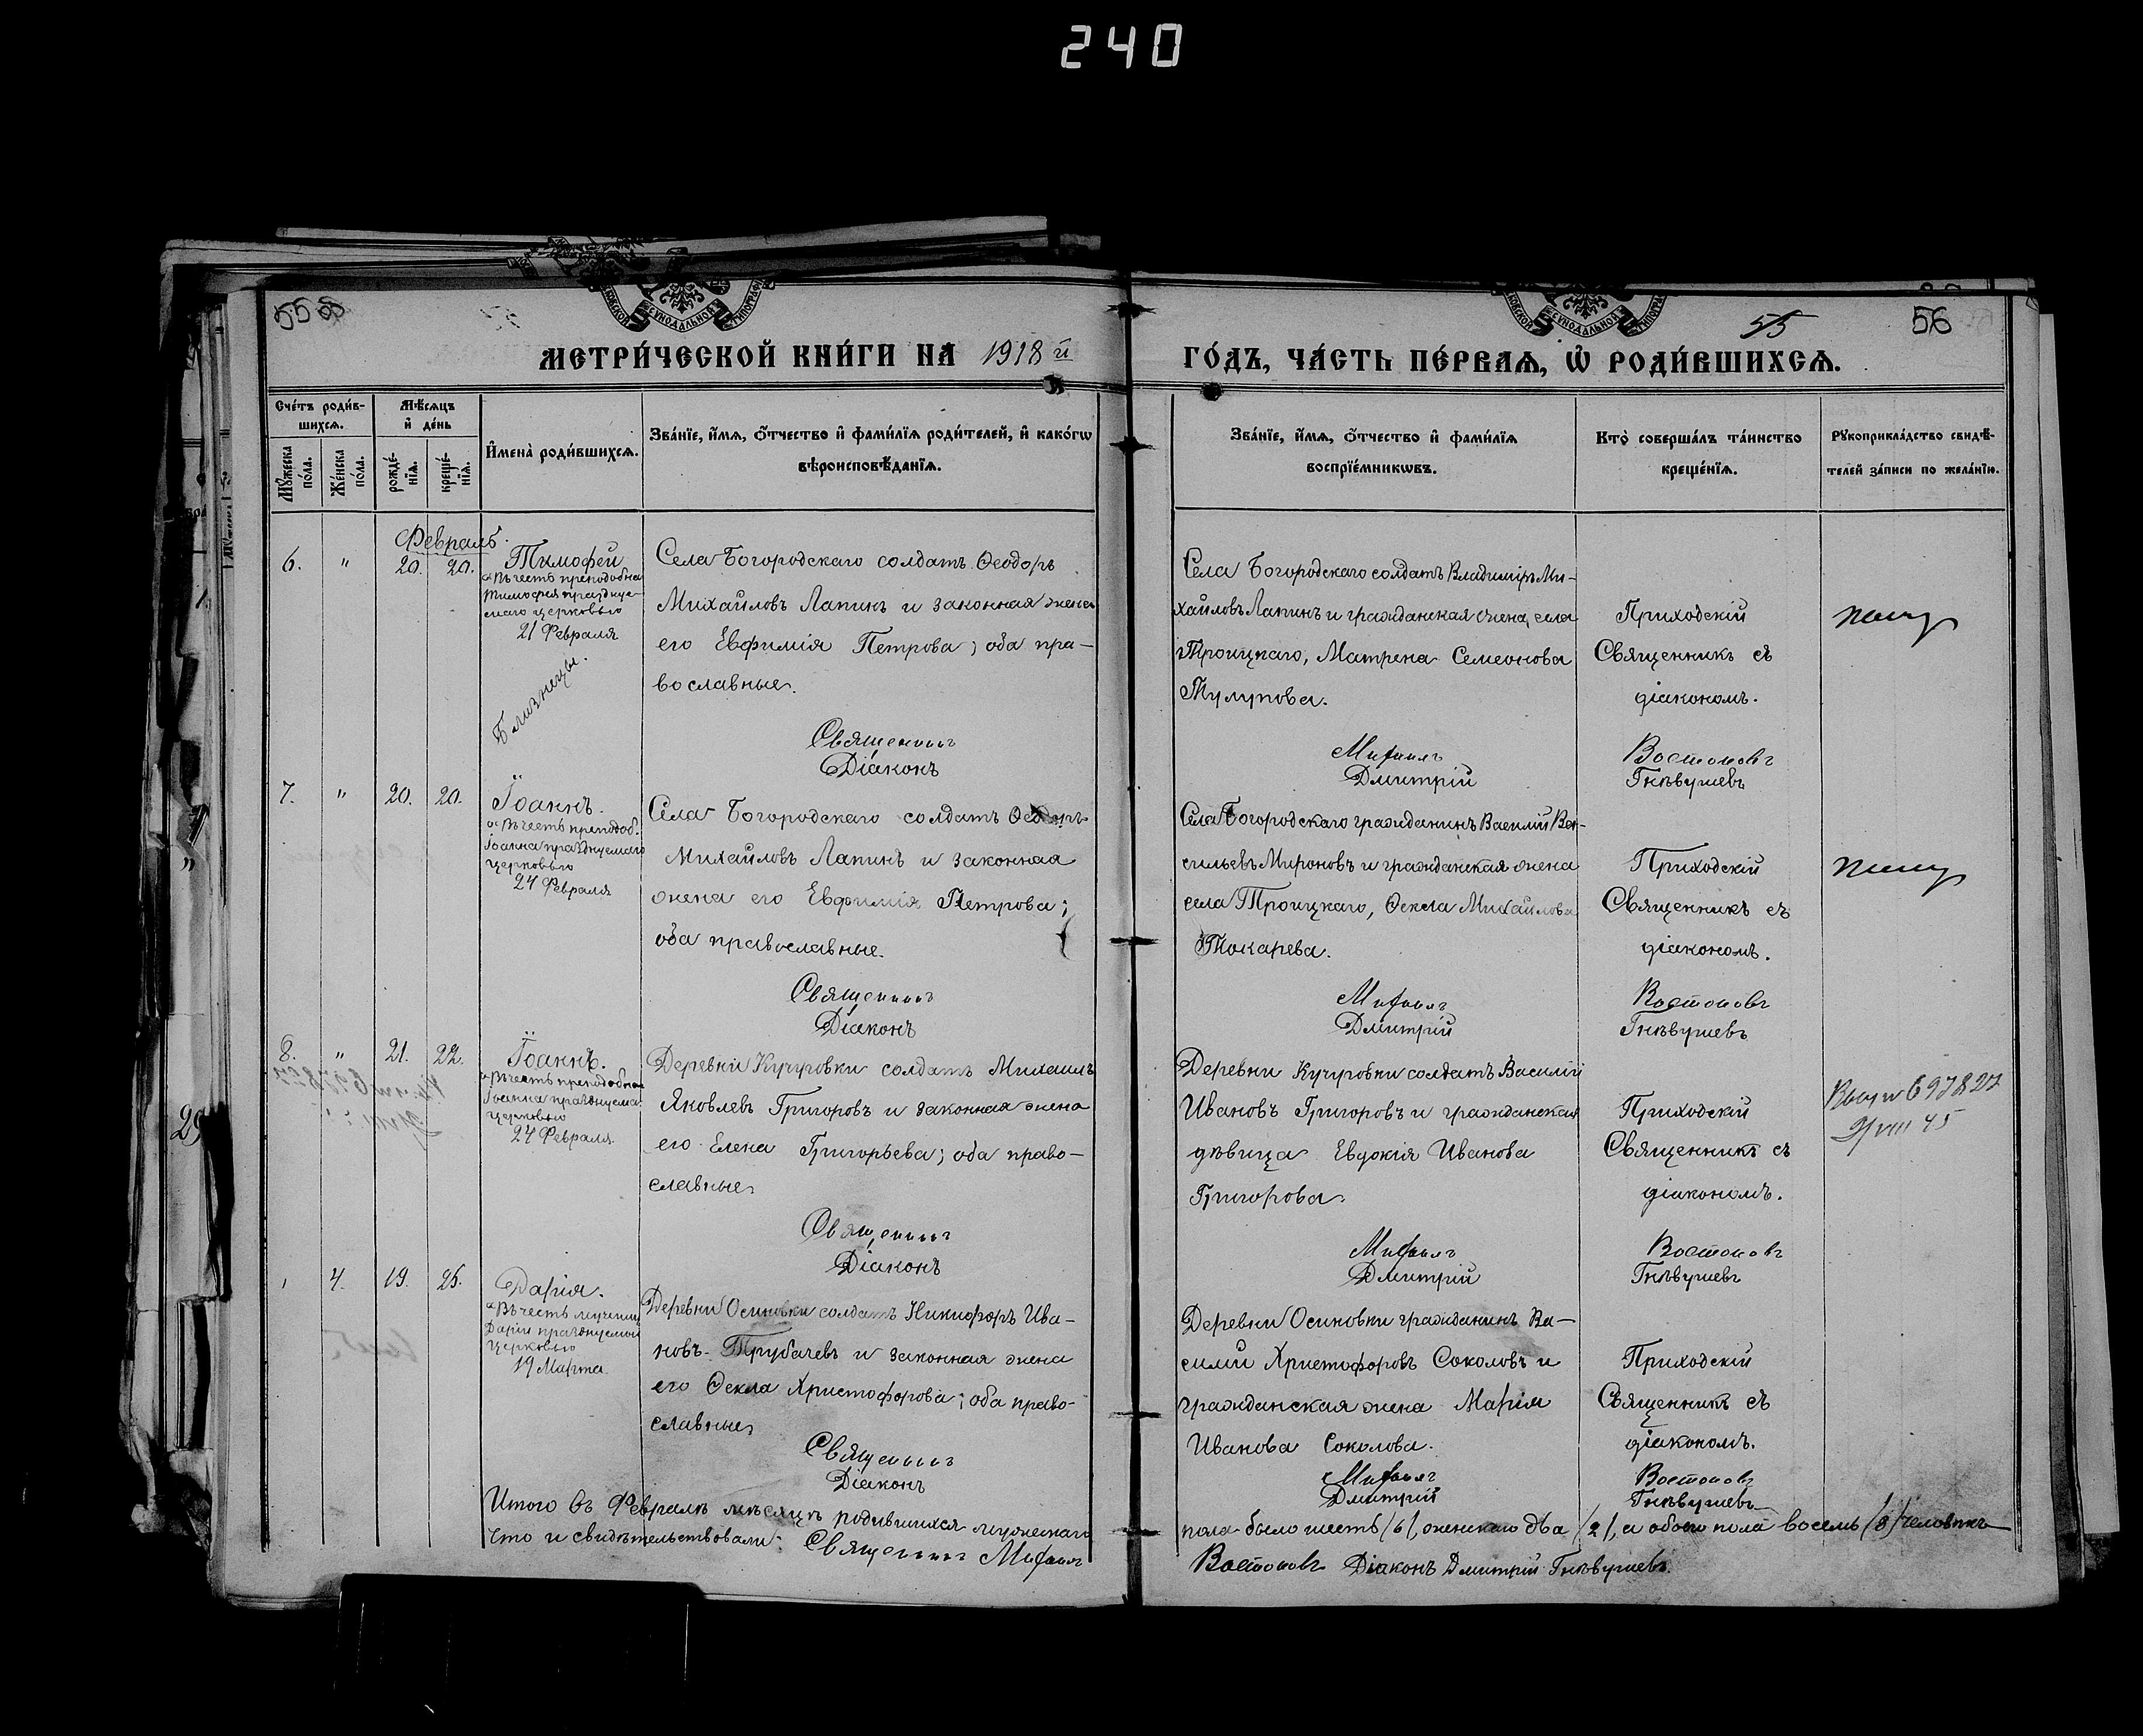 240
МЕТРИ́ЧЕСКОЙ КНИ́ГИ НА 1918 й
ГО́ДЪ, ЧА́СТЬ ПЕ́РВАѦ, Ѽ РОДИ́ВШИХСѦ.
55
56
Счéтъ роди́в-
шихсѧ.
Мѣ́сѧцъ
и҆ де́нь
Мꙋ́жеска по́ла.
Же́нска по́ла.
рожде́нїѧ.
креще́нїѧ.
И҆мена̀ роди́вшихсѧ.
Зва́нїе, и҆́мѧ, ѻ҆́тчество и҆ фами́лїѧ роди́телей, и҆ како́гѡ
вѣроисповѣ́данїѧ.
Зва́нїе, и҆́мѧ, ѻ҆́тчество и҆ фами́лїѧ
воспрїе́мникѡвъ.
Кто̀ соверша́лъ та́инство
креще́нїѧ.
Рꙋкоприкла́дство свидѣ́-
телей за́писи по жела́нїю.
Февраль.
6. " 20. 20.
Тимофей
Въ честь преподобна
Тимофея празднуе-
маго церковью
21 Февраля
Близнецы.
Села Богородскаго солдатъ Ѳеодоръ
Михайловъ Лапинъ и законная жена
его Евфимія Петрова; оба пра-
вославные.
Священникъ
Діаконъ
Села Богородскаго солдатъ Владиміръ Ми-
хайловъ Лапинъ и гражданская жена, села
Троицкаго, Матрена Семеонова
Тулупова.
Михаилъ
Дмитрій
Приходскій
Священникъ съ
діакономъ.
Востоковъ
Гнѣвушевъ
7. " 20. 20.
Іоаннъ.
Въ честь преподоб.
Іоанна празднуемаго
церковью
24 Февраля
Села Богородскаго солдатъ Ѳеодоръ
Михайловъ Лапинъ и законная
жена его Евфимія Петрова;
оба православные.
Священникъ
Діаконъ
Села Богородскаго гражданинъ Василій Ва-
сильевъ Мироновъ и гражданская жена
села Троицкаго, Ѳекла Михайлова
Токарева.
Михаилъ
Дмитрій
Приходскій
Священникъ съ
діакономъ.
Востоковъ
Гнѣвушевъ
8. " 21. 22.
Іоаннъ.
Въ честь преподобна
Іоанна празднуема
церковью
24 Февраля.
Деревни Кучуровки солдатъ Михаилъ
Яковлевъ Григоровъ и законная жена
его Елена Григорьева; оба право-
славные
Священникъ
Діаконъ
Деревни Кучуровки солдатъ Василій
Ивановъ Григоровъ и гражданская
дѣвица Евдокія Иванова
Григорова.
Михаилъ
Дмитрій
Приходскій
Священникъ съ
діакономъ.
Востоковъ
Гнѣвушевъ
697827
9/VIII 45
4. 19. 25.
Дарія.
Въ честь мучениц
Даріи празднуемой
церковью
19 Марта
Деревни Осиновки солдатъ Никифоръ Ива-
новъ Трубачевъ и законная жена
его Ѳекла Христофорова; оба право-
славные
Священникъ
Діаконъ
Деревни Осиновки гражданинъ Ва-
силій Христофоровъ Соколовъ и
гражданская жена Марія
Иванова Соколова.
Михаилъ
Дмитрій
Приходскій
Священникъ съ
діакономъ.
Востоковъ
Гнѣвушевъ
Итого въ Февралѣ мѣсяцѣ родившихся мужескаго
пола было шесть /6/, женскаго два /2/, а обоего пола восемь /8/ человѣкъ
что и свидѣтельствовали: Священникъ Михаилъ
Востоковъ Діаконъ Дмитрій Гнѣвушевъ.